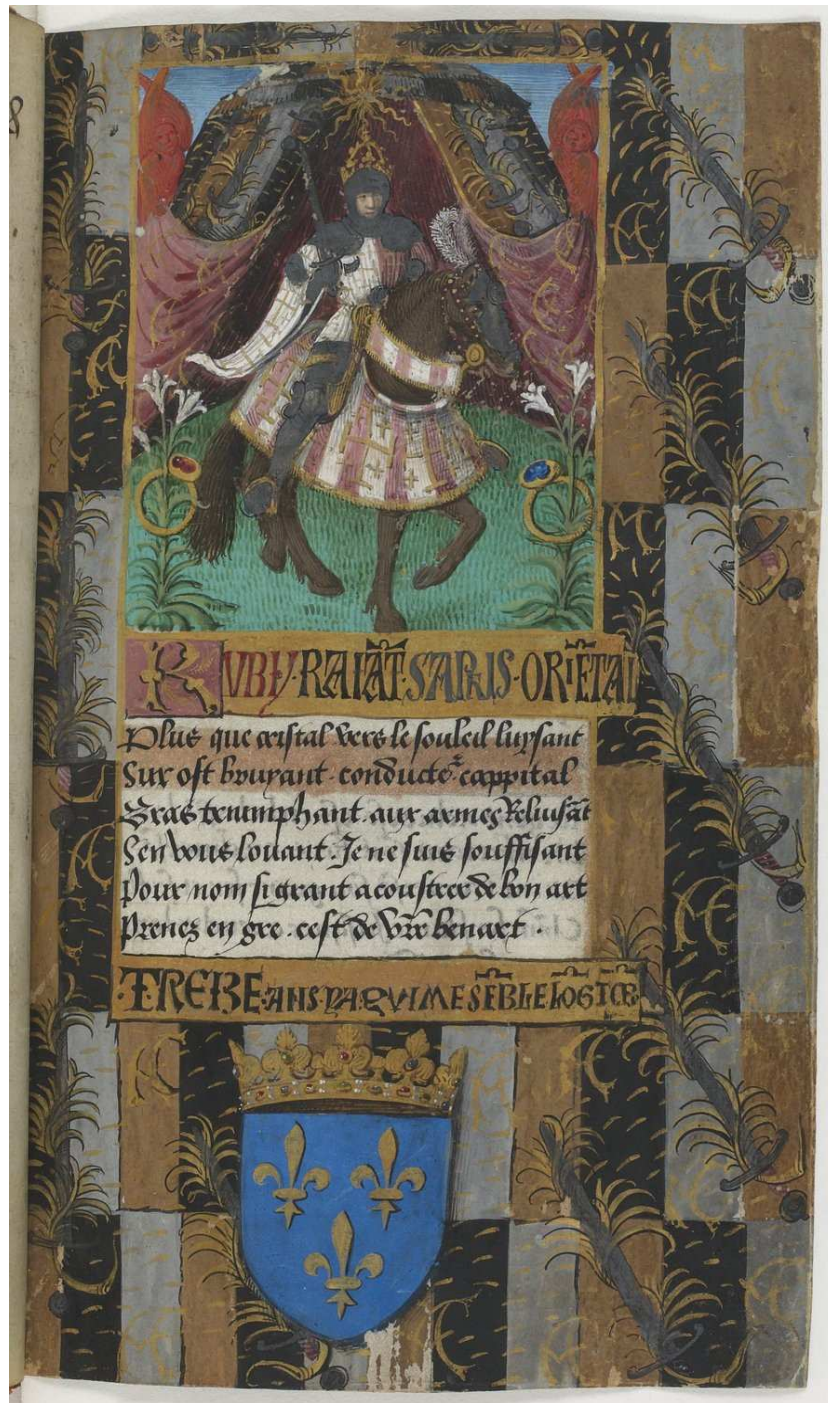 RUBY·RAIĀT·SAPhIS·ORIĒTAL
Plus que cristal vers le souleil luysant
Sur ost bruyant· conducte᷑ cappital
Gras triumphant· aux armes Reluisāt
Sen vous louant. Je ne suis souffisant
Pour nom si grant acoustrer de bon art
Prenez en gre· cest de vr̄e benart·
·TREIZE·ANS·YA·QVI ME SĒBLE